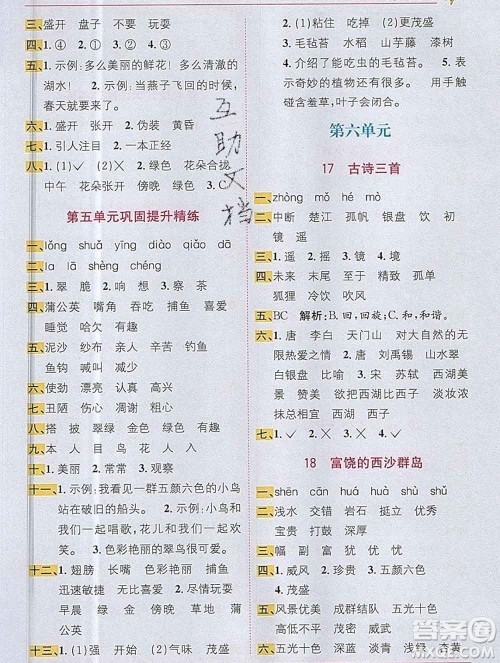 三、盛开 盘子 不要 玩耍
四、1.④ 2.① 3.② 4.①
五、1.示例:多么美丽的鲜花!多么清澈的
湖水! 2.示例:当燕子飞回的时候,
春天就要来了。
六、1.盛开 张开 2.伪装 黄昏
七、1.引人注目 2.一本正经
八、1.(1)✓ (2)✕ 2.绿色 花朵合拢
中午 花朵张开 傍晚 绿色 3.C
第五单元巩固提升精练
一、lǒng shuǎ yīng diào zhāi chā
二、la lā shēng dì
三、1.察 2.影 3.响 4.察 茶
四、蒲公英 嘴角 吞吃 捕鱼
睡觉 哈欠 有趣
五、泥沙 纱布 亲人 辛苦 钓鱼
鱼钩 喊叫 减少
六、使劲 漂亮 认真 高兴
七、丑陋 伤心 凋谢 粗心
八、搭 披 翠绿 绿色 有趣
九、目 本 口 鸟 花 人 入
十、1.美丽 2.常常 3.观察
十一、1.示例:我看见一群五颜六色的小鸟
站在破旧的船头。 2.示例:小鸟和
我们一起唱歌,花儿和我们一起欢
笑。 3.色彩艳丽的翠鸟历历在目。
十二、1.翅膀 长嘴 色彩艳丽 小巧玲珑
迅速敏捷 无比喜爱 2.尽情玩耍
早晨 绿色 金色 傍晚 绿色 蒲
公英
十三、1.(1)强 开始 (2)气味 茂盛
2.(1)粘住 吃掉 (2)更茂盛
3.毛毡苔 水草 山芋藤 漆树
4.介绍了能吃虫的毛毡苔。 5.示例:
奇妙的植物还有很多。 用手触
碰含羞草,叶子会闭合。
第六单元
17 古诗三首
一、zhòng mó yí xiāng
二、中断 楚江 孤帆 银盘 饮 初
镜 遥
三、1.遥 2.摇 3.磨 4.镜
四、未来 末尾 至于 精致 孤单
狐狸 冷饮 欢欣
五、BC 解析:B.回,回旋;C.和,和谐。
六、1.唐 李白 天门山 对大自然的无
限热爱之情 2.唐 刘禹锡 山水如画
白银盘里一青螺 3.宋 苏轼 西湖美
景 欲把西湖比西子 淡妆浓
抹总相宜
七、1.✓ 2.✕ 3.✓ 4.✓
18 富饶的西沙群岛
一、shēn cān huá huá shù shǔ
二、浅水 交错 岩石 挺立 优秀
宝贵 打鼓 深厚
三、幅 副 富 犹 优 忧
四、1.威风 2.珍贵 3.五颜六色
五、风景优美 成群结队 五光十色
六、五光十色 深蓝 淡青 浅绿 杏黄
互助文档